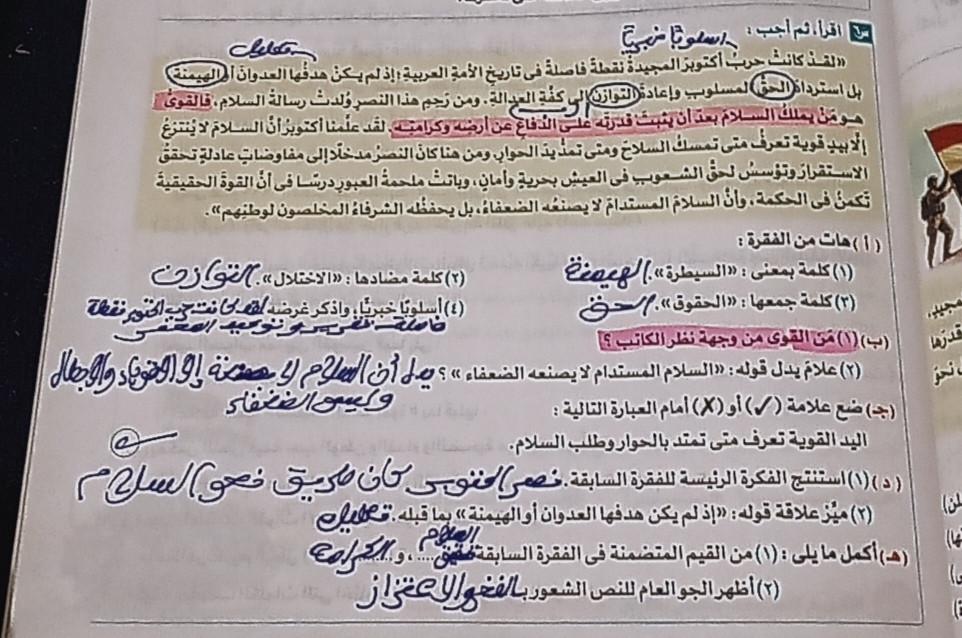 س٦ اقرأ، ثم أجب :
اسلوبًا خبريًا
تعليل
«لقد كانت حرب أكتوبر المجيدة نقطة فاصلة فى تاريخ الأمة العربية؛ إذ لم يكن هدفها العدوان أو الهيمنة
بل استرداد الحق المسلوب وإعادة التوازن إلى كفة العدالة. ومن رحم هذا النصر وُلدت رسالة السلام، فالقوى
هو مَنْ يملك السلام بعد أن يثبت قدرته على الدفاع عن أرضه وكرامته. لقد علَّمنا أكتوبر أنَّ السلام لا يُنتزع
إلَّا بيدٍ قوية تعرف متى تمسك السلاح ومتى تمد يد الحوار. ومن هنا كان النصر مدخلًا إلى مفاوضات عادلة تحقق
الاستقرار وتؤسس لحق الشعوب فى العيش بحرية وأمان، وباتت ملحمة العبور درسًا فى أنَّ القوة الحقيقية
تكمن فى الحكمة، وأنَّ السلام المستدام لا يصنعه الضعفاء، بل يحفظه الشرفاء المخلصون لوطنهم».
(أ) هات من الفقرة :
(١) كلمة بمعنى : «السيطرة». الهيمنة
(٢) كلمة مضادها : «الاختلال». التوازن
(٣) كلمة جمعها : «الحقوق». الحق
(٤) أسلوبًا خبريًّا، واذكر غرضه لقد كانت حرب اكتوبر نقطة
فاصلة تقرير وتوكيد المعنى
(ب) (١) مَن القوى من وجهة نظر الكاتب ؟
(٢) علامَ يدل قوله : «السلام المستدام لا يصنعه الضعفاء» ؟ يدل أن السلام لا يصنعة إلا الاقوياء والابطال
وليس الضعفاء
(جـ) ضع علامة (✓) أو (✗) أمام العبارة التالية :
اليد القوية تعرف متى تمتد بالحوار وطلب السلام.
(د) (١) استنتج الفكرة الرئيسة للفقرة السابقة. نصر اكتوبر كان طريق نحو السلام
(٢) ميِّز علاقة قوله : «إذ لم يكن هدفها العدوان أو الهيمنة» بما قبله. تعليل
(هـ) أكمل ما يلى : (١) من القيم المتضمنة فى الفقرة السابقة السلام، و الكرامة
(٢) أظهر الجو العام للنص الشعور بـ الفخر والاعتزاز